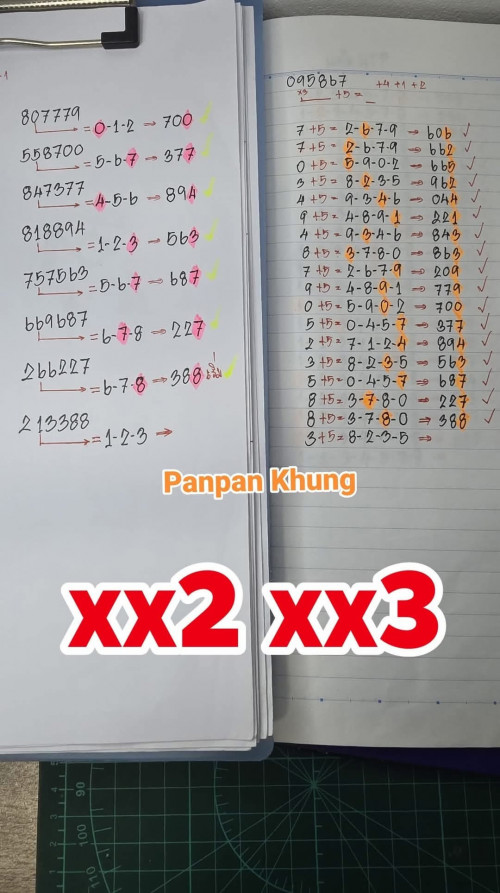 -1
807779
= 0-1-2 → 700
558700
= 5-6-7 → 377
847377
= 4-5-6 → 894
818894
= 1-2-3 → 563
757563
= 5-6-7 → 687
669687
= 6-7-8 → 227
266227
= 6-7-8 → 388
213388
= 1-2-3 →
095867 +4+1+2
x3 +5 = _
7+5 = 2-6-7-9 ⇒ 606 ✓
7+5 = 2-6-7-9 ⇒ 662 ✓
0+5 = 5-9-0-2 ⇒ 665 ✓
3+5 = 8-2-3-5 ⇒ 962 ✓
4+5 = 9-3-4-6 ⇒ 044 ✓
9+5 = 4-8-9-1 ⇒ 221 ✓
4+5 = 9-3-4-6 ⇒ 843 ✓
8+5 = 3-7-8-0 ⇒ 863 ✓
7+5 = 2-6-7-9 ⇒ 209 ✓
9+5 = 4-8-9-1 ⇒ 779 ✓
0+5 = 5-9-0-2 ⇒ 700 ✓
5+5 = 0-4-5-7 ⇒ 377 ✓
2+5 = 7-1-2-4 ⇒ 894 ✓
3+5 = 8-2-3-5 ⇒ 563 ✓
5+5 = 0-4-5-7 ⇒ 687 ✓
8+5 = 3-7-8-0 ⇒ 227 ✓
8+5 = 3-7-8-0 ⇒ 388 ✓
3+5 = 8-2-3-5 ⇒
Panpan Khung
xx2 xx3